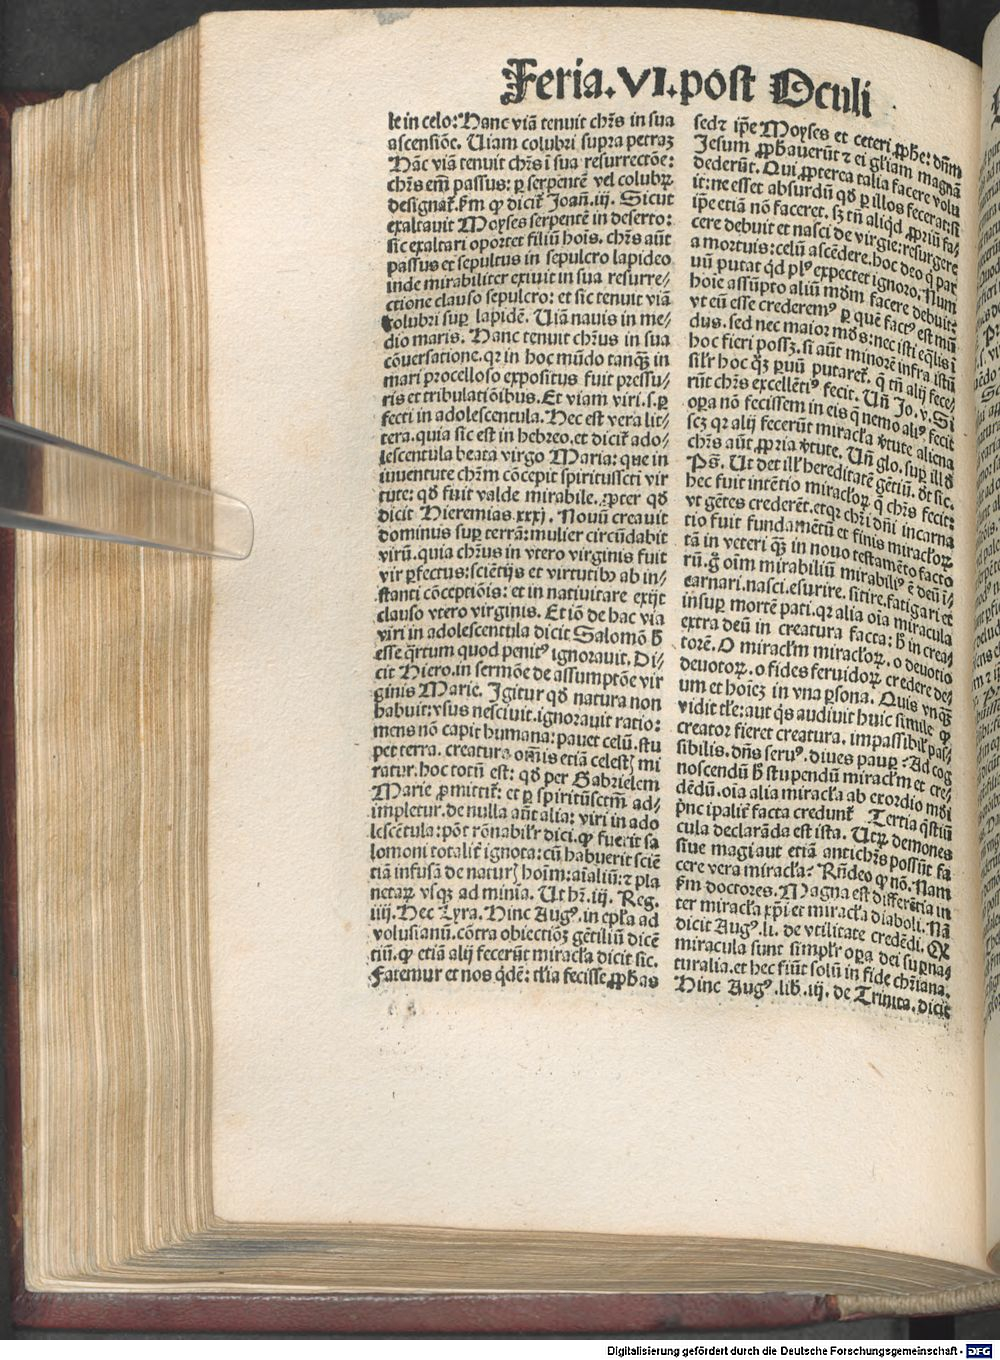 Feria.VI.post Oculi
le in celo: Hanc viã tenuit chr̃s in sua
ascensiõe. Uiam colubri supra petraʒ
Hãc viã tenuit chr̃s ĩ sua resurrectõe:
chr̃s em̃ passus: ꝑ serpentẽ vel colubꝝ
designat̃. ẜm ꝙ dicit̃ Joañ.iij. Sicut
exaltauit Moyses serpentẽ in deserto:
sic exaltari oportet filiũ hoĩs. chr̃s aũt
passus et sepultus in sepulcro lapideo
inde mirabiliter exiuit in sua resurre⸗
ctione clauso sepulcro: et sic tenuit viã
colubri suꝑ lapidẽ. Uiã nauis in me⸗
dio maris. Hanc tenuit chr̃us in sua
cõuersatione. qꝛ in hoc mũdo tanqȝ in
mari procelloso expositus fuit pressu⸗
ris et tribulatiõibus. Et viam viri.s.ꝑ
fecti in adolescentula. Hec est vera lit⸗
tera. quia sic est in hebreo. et dicit̃ ado⸗
lescentula beata virgo Maria: que in
iuuentute chr̃m cõcepit spiritussctĩ vir
tute: qð fuit valde mirabile. ꝓpter qð
dicit Hieremias.xxxj. Nouũ creauit
dominus suꝑ terrã: mulier circũdabit
virũ. quia chr̃us in vtero virginis fuit
vir ꝑfectus: sciẽtijs et virtutibꝰ ab in⸗
stanti cõceptiõis: et in natiuitate exijt
clauso vtero virginis. Et iõ de hac via
viri in adolescentula dicit Salomõ ħ
esse q̃rtum quod penitꝰ ignorauit. Di⸗
cit Hiero. in sermõe de assumptõe vir
ginis Marie. Igitur qð natura non
habuit: vsus nesciuit. ignorauit ratio:
mens nõ capit humana: pauet celũ. stu
pet terra. creatura om̃is etiã celestꝭ mi
ratur. hoc totũ est: qð per Gabrielem
Marie ꝓmittit̃: et ꝑ spiritũsctm̃ ad⸗
impletur. de nulla aũt alia: viri in ado
lescẽtula: põt rõnabil̃r dici. ꝙ fuerit sa
lomoni totalit̃ ignota: cũ habuerit sciẽ
tiã infusã de naturꝭ hoĩm: aĩaliũ: ⁊ pla
netaꝝ vsqȝ ad minia. Ut hr̃.iij. Reg.
iiij. Hec Lyra. Hinc Augꝰ. in ep̃la ad
volusianũ. cõtra obiectiõʒ gẽtiliũ dicẽ
tiũ. ꝙ etiã alij fecerũt miracła dicit sic.
Fatemur et nos q̃dẽ: tl̃ia fecisse ꝓphas
sedꝫ ip̃e Moyses et ceteri ꝓphe: dñm
Jesum ꝓphauerũt ⁊ ei gl̃iam magnã
dederũt. Qui ꝓpterea talia facere volu
it: ne esset absurdũ qð ꝑ illos fecerat: si
ip̃e etiã nõ faceret. sꝫ tñ aliqð ꝓpriũ fa⸗
cere debuit et nasci de virgĩe: resurgere
a mortuis: celũ ascẽdere. hoc deo q̃ par
uũ putat qð plꝰ expectet ignoro. Num
hoĩe assũpto aliũ mõm facere debuit:
vt eũ esse crederemꝰ ꝑ quẽ factꝰ est mũ
dus. sed nec maior mðs: nec isti eq̃lis ĩ
hoc fieri possꝫ. si aũt minorẽ infra istũ
sil̃r hoc qȝ ꝑuũ putaret̃. q̃ tñ alij fece⸗
rũt chr̃s excellẽtiꝰ fecit. Uñ Jo.v. Si
oꝑa nõ fecissem in eis q̃ nemo aliꝰ fecit
scꝫ qꝛ alij fecerũt miracła v̾tute aliena
chr̃s aũt ꝓpria v̾tute. Uñ glo. suꝑ illð
Ps̃. Ut det ill̃ hereditatẽ gẽtiũ. ðt sic.
hec fuit intẽtio miracłoꝝ q̃ chr̃s fecit:
vt gẽtes crederẽt. etqꝛ chr̃i dñi incarna
tio fuit fundamẽtũ et finis miracłoꝝ
tã in veteri qȝ in nouo testamẽto facto
rũ. g̊ oĩm mirabiliũ mirabiliꝰ ẽ deũ ĩ⸗
carnari. nasci. esurire. sitire. fatigari et
insuꝑ mortẽ pati. qꝛ alia oĩa miracula
extra deũ in creatura facta: ħ in crea⸗
torẽ. O miracłm miracłoꝝ. o deuotio
deuotoꝝ. o fides feruidoꝝ credere deʒ
um et hoĩeʒ in vna ꝑsona. Quis vnqȝ
vidit tłe: aut q̃s audiuit huic simile ꝙ
creator fieret creatura. impassibił pas⸗
sibilis. dñs seruꝰ. diues pauꝑ? Ad cog
noscendũ ħ stupendũ miracłm et cre⸗
dẽdũ. oĩa alia miracła ab exordio mõi
p̃ncipalit̃ facta credunt̃ Tertia q̃stiũ
cula declarãda est ista. Utꝝ demones
siue magi aut etiã antichr̃s possũt fa
cere vera miracła? Rñdeo ꝙ nõ. Nam
ẜm doctores. Magna est differẽtia in
ter miracła xp̃i et miracła diaboli. Nã
dicit Augꝰ. li. de vtilitate credẽdi. Qꝫ
miracula sunt simpl̃r oꝑa dei suꝑna⸗
turalia. et hec fiũt solũ in fide chr̃iana.
Hinc Augꝰ. lib.iij. de Trinita. dicit
Digitalisierung gefördert durch die Deutsche Forschungsgemeinschaft - DFG